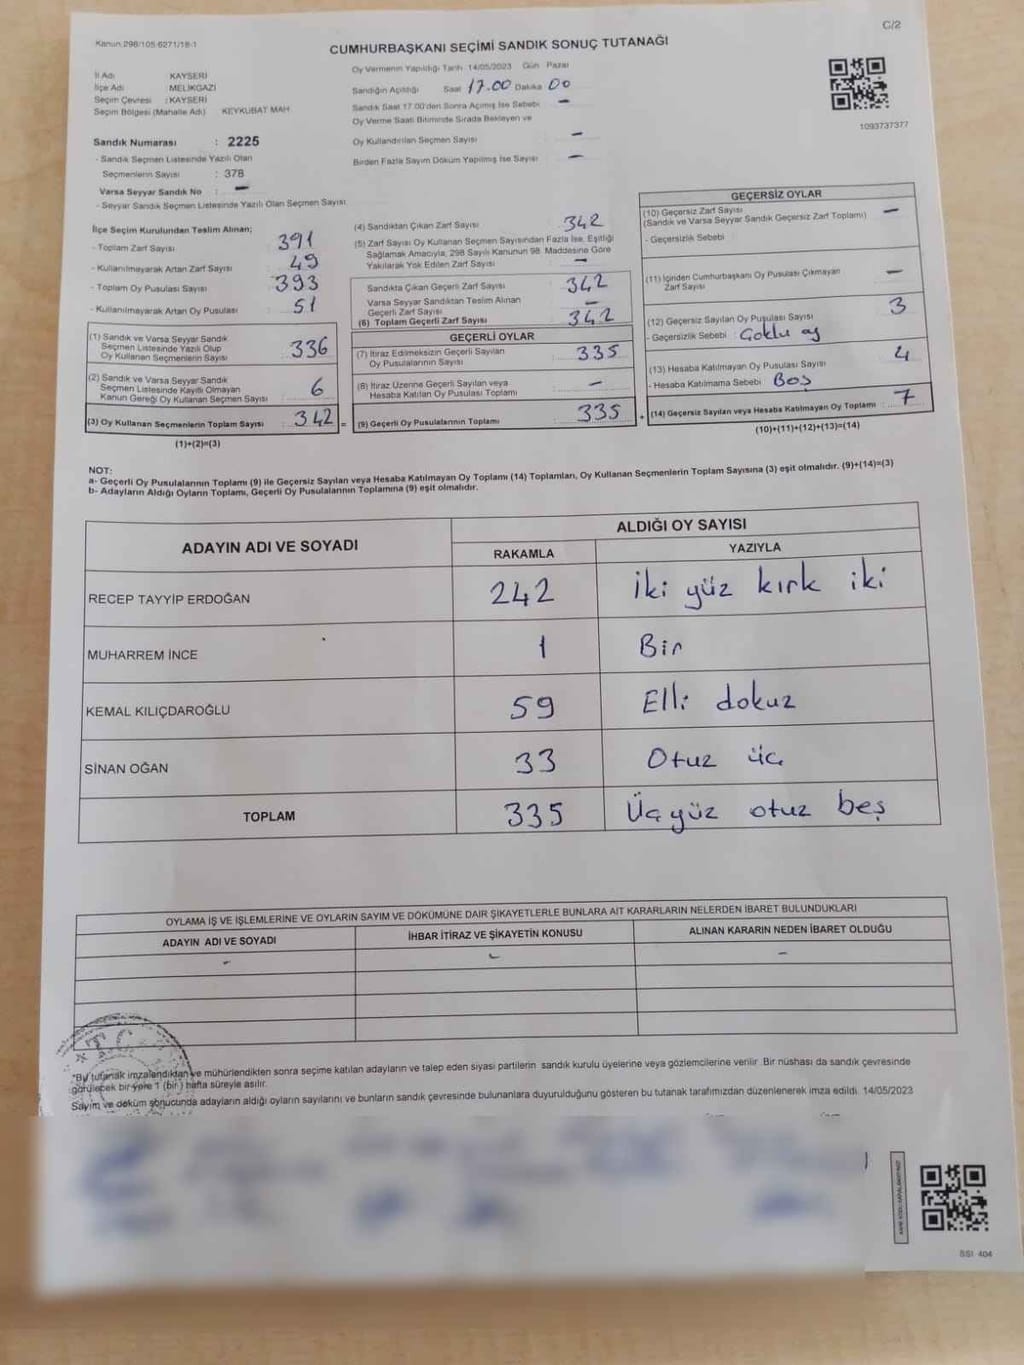 C/2
Kanun 298/105 6271/18-1
CUMHURBAŞKANI SEÇİMİ SANDIK SONUÇ TUTANAĞI
İl Adı KAYSERİ
İlçe Adı MELİKGAZİ
Seçim Çevresi : KAYSERİ
Seçim Bölgesi (Mahalle Adı) KEYKUBAT MAH.
Oy Vermenin Yapıldığı Tarih 14/05/2023 Gün Pazar
Sandığın Açıldığı Saat 17.00 Dakika 00
Sandık Saat 17.00'den Sonra Açılmış İse Sebebi –
Oy Verme Saati Bitiminde Sırada Bekleyen ve
Oy Kullandırılan Seçmen Sayısı –
Birden Fazla Sayım Döküm Yapılmış İse Sayısı –
1093737377
Sandık Numarası : 2225
- Sandık Seçmen Listesinde Yazılı Olan
Seçmenlerin Sayısı : 378
Varsa Seyyar Sandık No : –
- Seyyar Sandık Seçmen Listesinde Yazılı Olan Seçmen Sayısı
İlçe Seçim Kurulundan Teslim Alınan;
- Toplam Zarf Sayısı 391
- Kullanılmayarak Artan Zarf Sayısı 49
- Toplam Oy Pusulası Sayısı 393
- Kullanılmayarak Artan Oy Pusulası 51
(1) Sandık ve Varsa Seyyar Sandık
Seçmen Listesinde Yazılı Olup
Oy Kullanan Seçmenlerin Sayısı 336
(2) Sandık ve Varsa Seyyar Sandık
Seçmen Listesinde Kayıtlı Olmayan
Kanun Gereği Oy Kullanan Seçmen Sayısı 6
(3) Oy Kullanan Seçmenlerin Toplam Sayısı 342 =
(1)+(2)=(3)
(4) Sandıktan Çıkan Zarf Sayısı 342
(5) Zarf Sayısı Oy Kullanan Seçmen Sayısından Fazla İse, Eşitliği
Sağlamak Amacıyla, 298 Sayılı Kanunun 98. Maddesine Göre
Yakılarak Yok Edilen Zarf Sayısı –
Sandıkta Çıkan Geçerli Zarf Sayısı 342
Varsa Seyyar Sandıktan Teslim Alınan
Geçerli Zarf Sayısı –
(6) Toplam Geçerli Zarf Sayısı 342
GEÇERLİ OYLAR
(7) İtiraz Edilmeksizin Geçerli Sayılan
Oy Pusulalarının Sayısı 335
(8) İtiraz Üzerine Geçerli Sayılan veya
Hesaba Katılan Oy Pusulası Toplamı –
(9) Geçerli Oy Pusulalarının Toplamı 335 +
GEÇERSİZ OYLAR
(10) Geçersiz Zarf Sayısı –
(Sandık ve Varsa Seyyar Sandık Geçersiz Zarf Toplamı)
- Geçersizlik Sebebi
(11) İçinden Cumhurbaşkanı Oy Pusulası Çıkmayan
Zarf Sayısı –
(12) Geçersiz Sayılan Oy Pusulası Sayısı 3
- Geçersizlik Sebebi Çoklu oy
(13) Hesaba Katılmayan Oy Pusulası Sayısı 4
- Hesaba Katılmama Sebebi Boş
(14) Geçersiz Sayılan veya Hesaba Katılmayan Oy Toplamı 7
(10)+(11)+(12)+(13)=(14)
NOT:
a- Geçerli Oy Pusulalarının Toplamı (9) ile Geçersiz Sayılan veya Hesaba Katılmayan Oy Toplamı (14) Toplamları, Oy Kullanan Seçmenlerin Toplam Sayısına (3) eşit olmalıdır. (9)+(14)=(3)
b- Adayların Aldığı Oyların Toplamı, Geçerli Oy Pusulalarının Toplamına (9) eşit olmalıdır.
ADAYIN ADI VE SOYADI ALDIĞI OY SAYISI
RAKAMLA YAZIYLA
RECEP TAYYİP ERDOĞAN 242 İki yüz kırk iki
MUHARREM İNCE 1 Bir
KEMAL KILIÇDAROĞLU 59 Elli dokuz
SİNAN OĞAN 33 Otuz üç
TOPLAM 335 Üç yüz otuz beş
OYLAMA İŞ VE İŞLEMLERİNE VE OYLARIN SAYIM VE DÖKÜMÜNE DAİR ŞİKAYETLERLE BUNLARA AİT KARARLARIN NELERDEN İBARET BULUNDUKLARI
ADAYIN ADI VE SOYADI İHBAR İTİRAZ VE ŞİKAYETİN KONUSU ALINAN KARARIN NEDEN İBARET OLDUĞU
– – –
T.C.
*Bu tutanak imzalandıktan ve mühürlendikten sonra seçime katılan adayların ve talep eden siyasi partilerin sandık kurulu üyelerine veya gözlemcilerine verilir. Bir nüshası da sandık çevresinde
görülecek bir yere 1 (bir) hafta süreyle asılır.
Sayım ve döküm sonucunda adayların aldığı oyların sayılarını ve bunların sandık çevresinde bulunanlara duyurulduğunu gösteren bu tutanak tarafımızdan düzenlenerek imza edildi. 14/05/2023
SSI 404